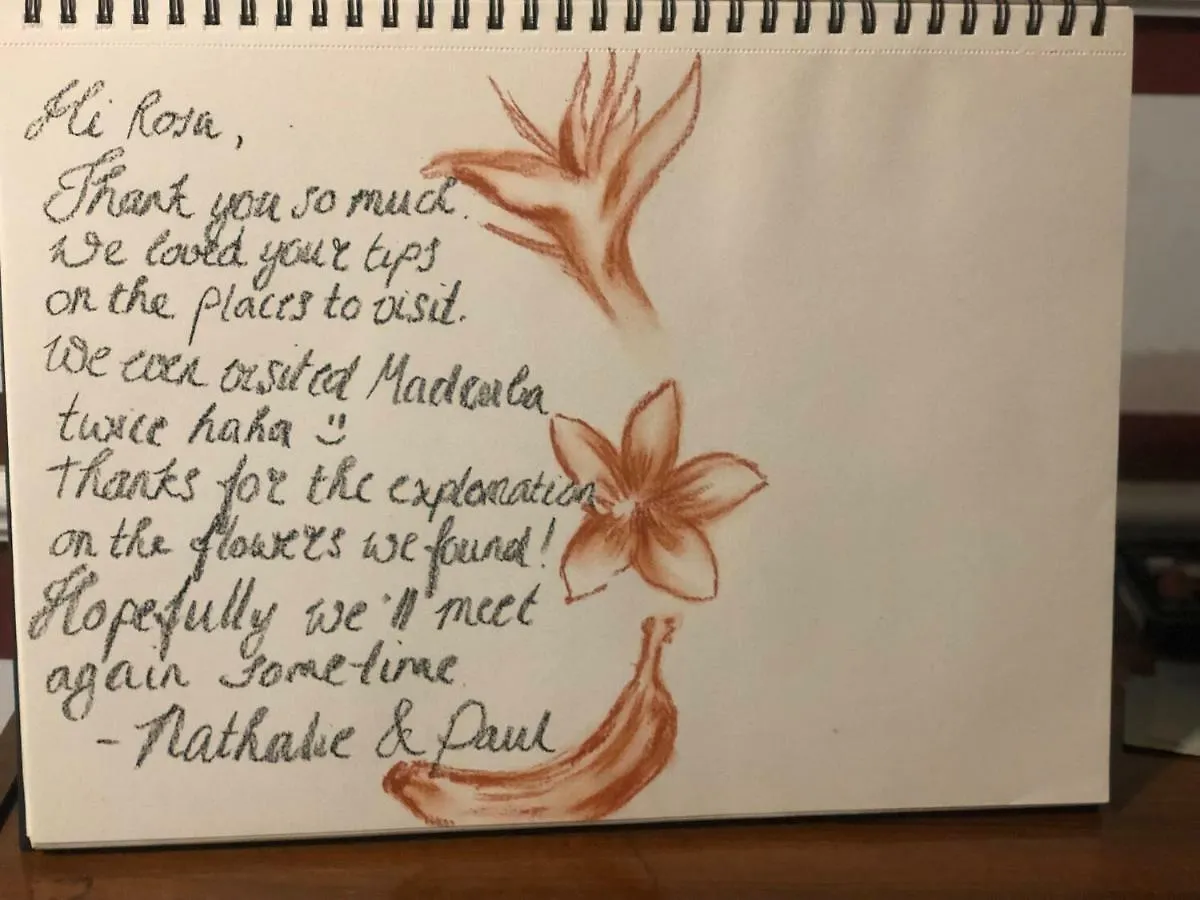 Hi Rosa,
Thank you so much.
We loved your tips
on the places to visit.
We even visited
twice haha :)
Thanks for the explanation
on the flowers we found!
Hopefully we'll meet
again sometime.
- Nathalie & Paul